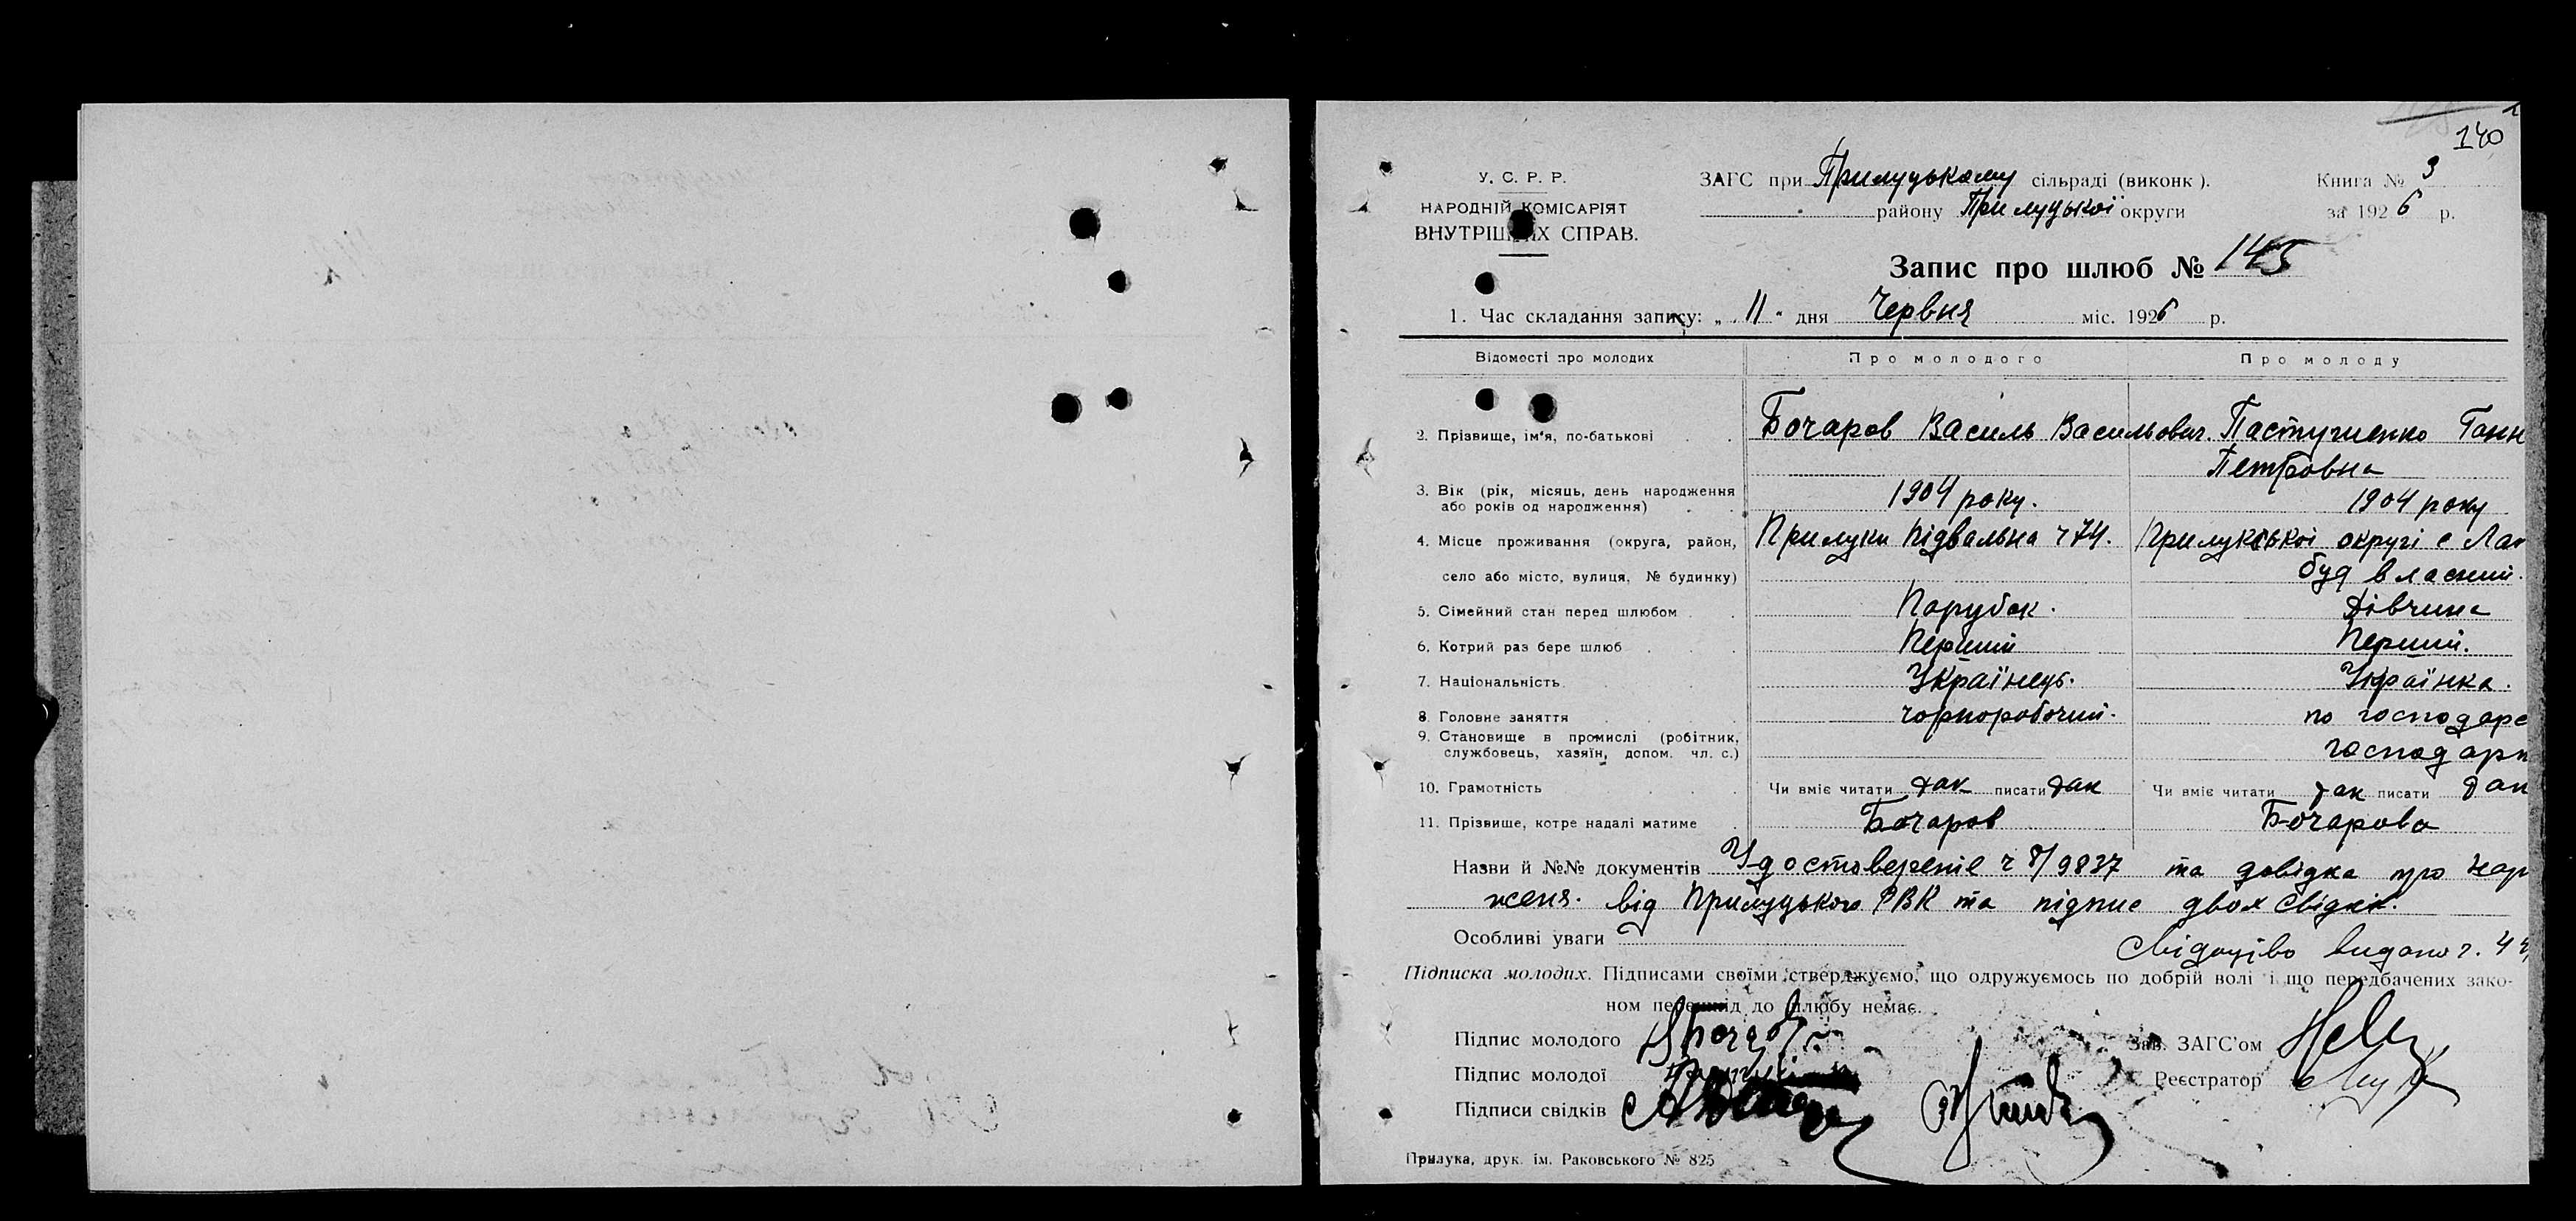 140
У. С. Р. Р.
НАРОДНІЙ КОМІСАРІЯТ
ВНУТРІШНІХ СПРАВ.
ЗАГС при Прилуцькому сільраді (виконк).
району Прилуцької округи
Книга № 3
за 1926 р.
Запис про шлюб № 145
1. Час складання запису: „ 11 " дня Червня міс. 1926 р.
Відомості про молодих Про молодого Про молоду
2. Прізвище, ім'я, по-батькові Бочаров Василь Васильович. Пастушенко Ганн
Петровна
3. Вік (рік, місяць, день народження 1904 року. 1904 року
або років од народження)
4. Місце проживання (округа, район, Прилуки Підвальна ч 74. Прилукської округі с
село або місто, вулиця, № будинку) буд власний.
5. Сімейний стан перед шлюбом Парубок. дівчина
6. Котрий раз бере шлюб Перший Перший.
7. Національність Українець. Українка.
8. Головне заняття чорноробочий. по господарс
9. Становище в промислі (робітник,
службовець, хазяїн, допом. чл. с.) господарк
10. Грамотність Чи вміє читати так писати так Чи вміє читати так писати так
11. Прізвище, котре надалі матиме Бочаров Бочарова
Назви й №№ документів Удостоверение ч 8/9837 та довідка про нар
женя. від Прилуцького РВК та підпис двох свідків.
Особливі уваги
видано ч. 4
Підписка молодих. Підписами своїми стверджуємо, що одружуємось по добрій волі і що передбачених зако-
ном перешкід до шлюбу немає.
Підпис молодого
Зав. ЗАГС'ом
Підпис молодої
Реєстратор
Підписи свідків
Прилука, друк. ім. Раковського № 825